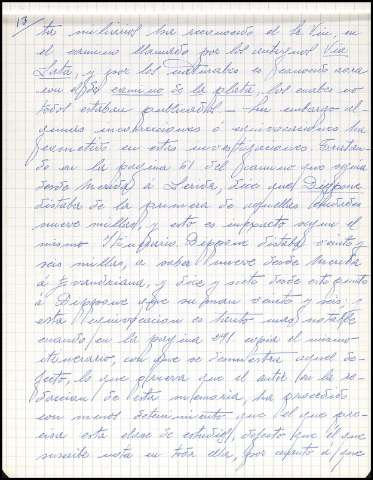 13/
miliarios ha reconocido el la Via, en
el camino llamado por los antiguos Via
Lata, y por los naturales es conocido ahora
con el de camino de la plata, los cuales no
todos estaban publicados — sin embargo al-
gunas incorrecciones ó equivocaciones ha
cometido en estas investigaciones. Tratan-
do en la pagina 51 del camino que seguia
desde Merida a Lerida, dice que Dippone
distaba de la primera de aquellas ciudades
nueve millas, y esto es inexacto segun el
mismo Itinerario. Dippone distaba veinte y
seis millas, a saber nueve desde Merida
á Evandriana, y diez y siete desde este punto
á Dippone que suman veinte y seis; y
esta equivocacion es tanto mas notable
cuando en la pagina 391 copia el mismo
itinerario, con que se demuestra aquel de-
fecto, lo que prueva que el autor en la re-
daccion de esta memoria, ha procedido
con menos detenimiento que el que pre-
cisa esta clase de estudios, defecto que el que
suscribe nota en toda ella, por cuanto á que